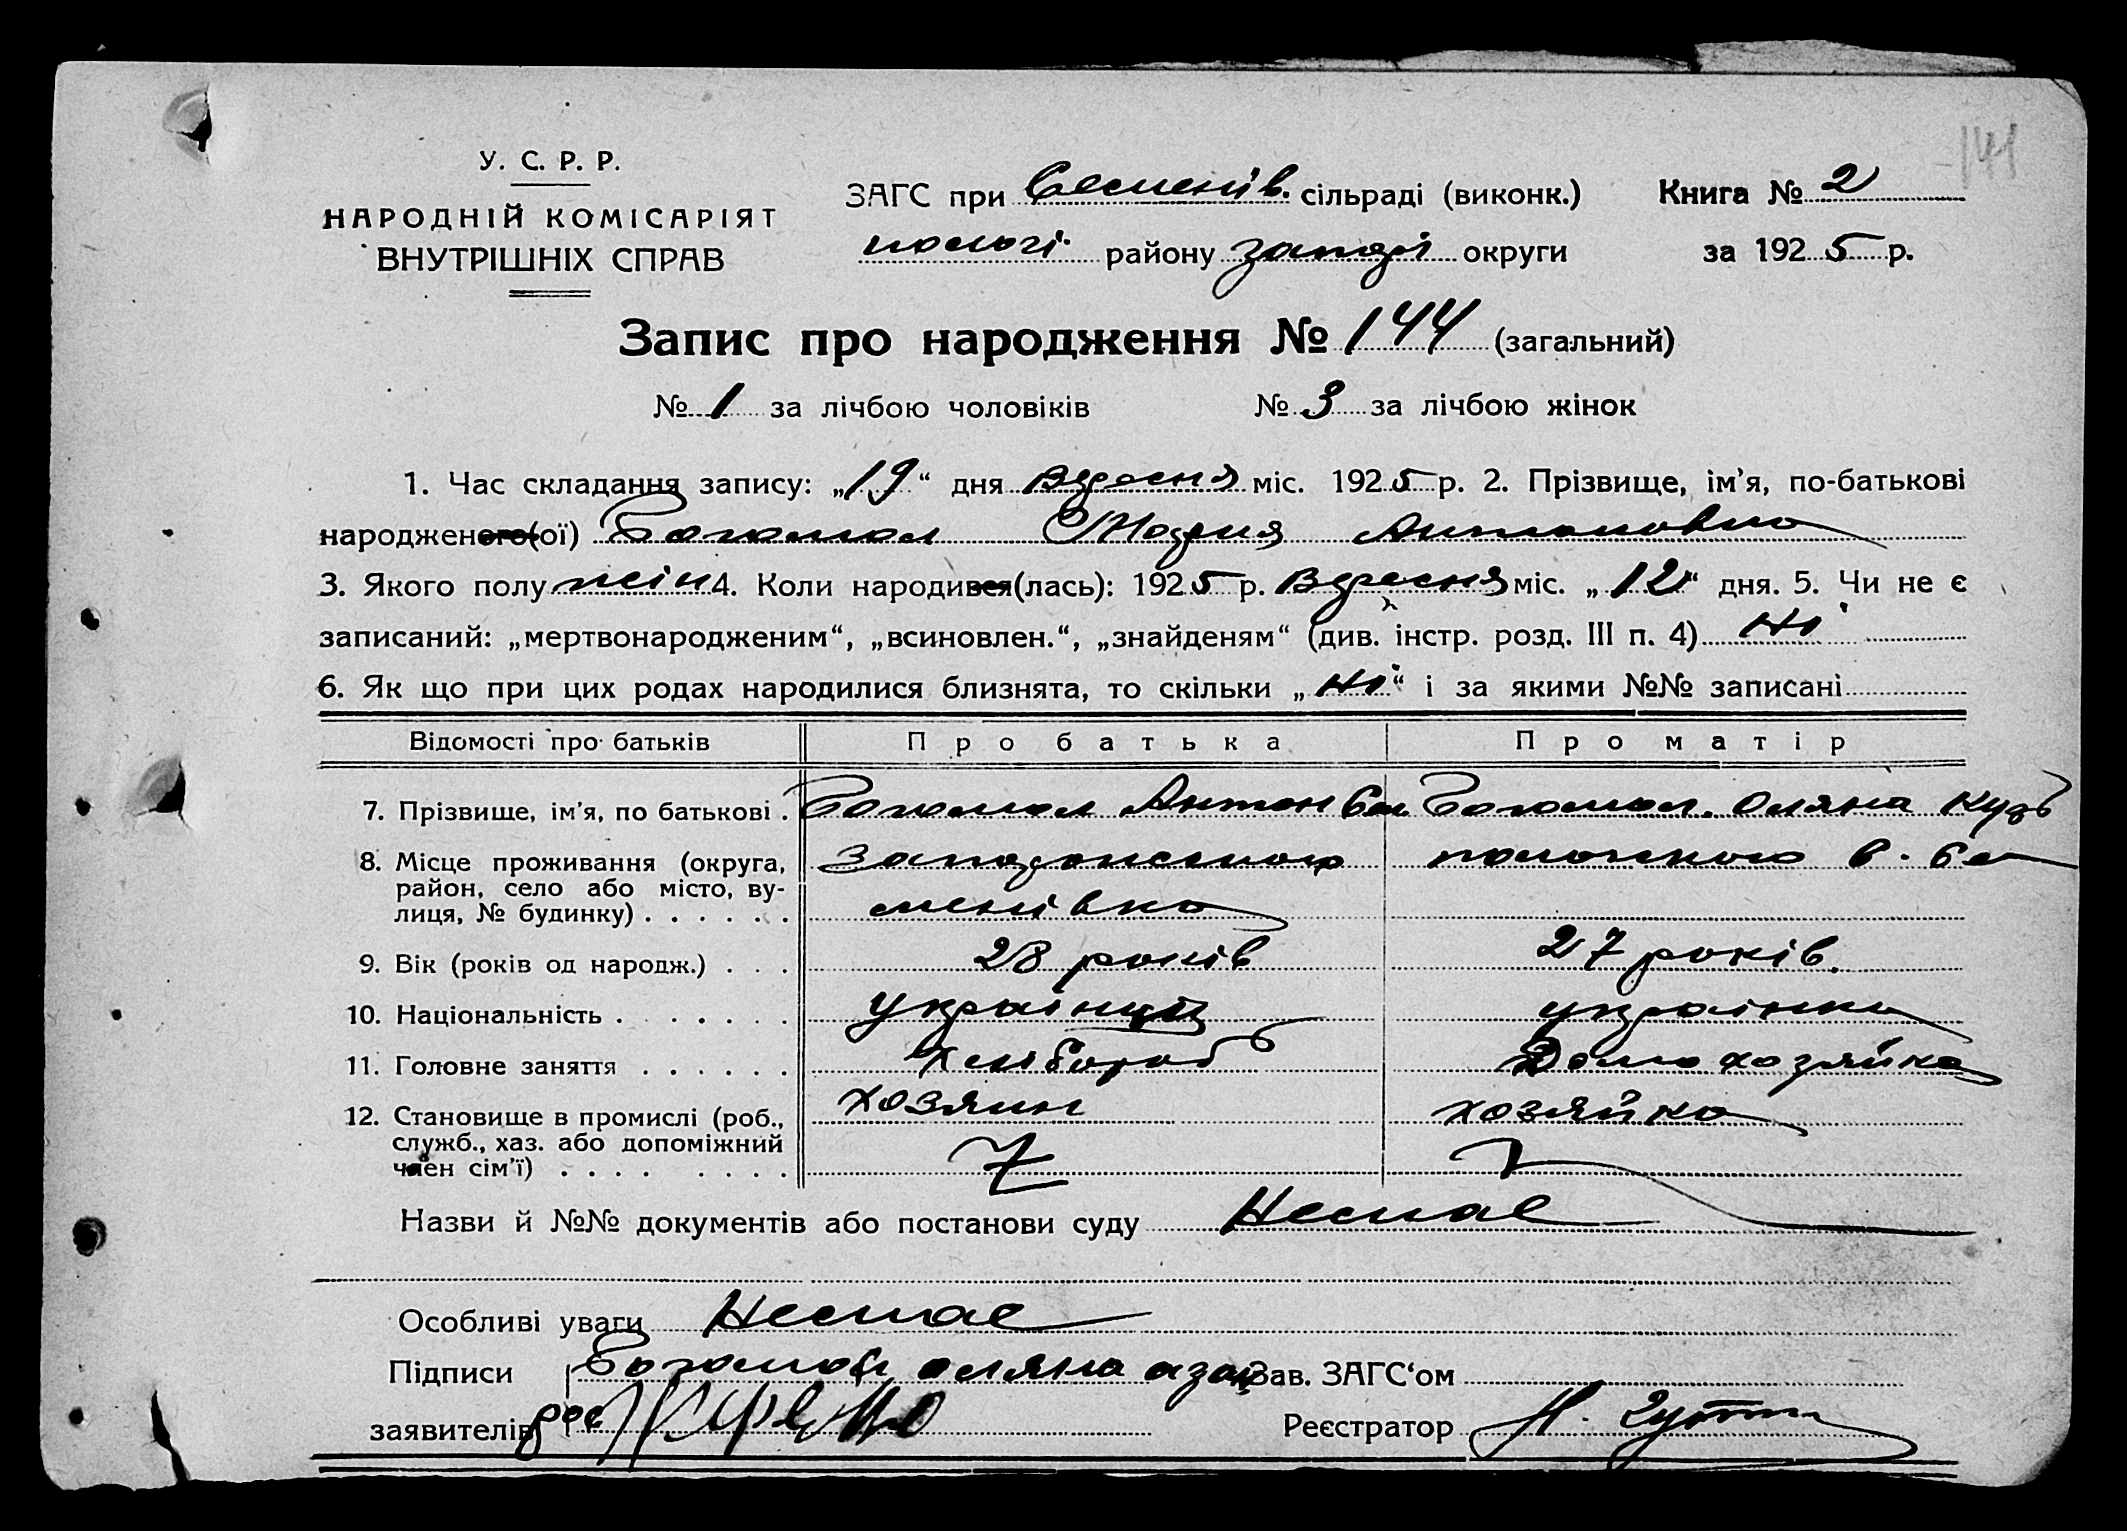 141
У. С. Р. Р.
НАРОДНІЙ КОМІСАРІЯТ
ВНУТРІШНІХ СПРАВ
ЗАГС при Семенів. сільраді (виконк.) Книга № 2
пологі району запорі округи за 1925 р.
Запис про народження № 144 (загальний)
№ 1 за лічбою чоловіків № 3 за лічбою жінок
1. Час складання запису: „19“ дня вересня міс. 1925 р. 2. Прізвище, ім'я, по-батькові
народженого(ої) Богомол Мария Антоновна
3. Якого полу жін 4. Коли народився(лась): 1925 р. Вересня міс. „12“ дня. 5. Чи не є
записаний: „мертвонародженим“, „всиновлен.“, „знайденям“ (див. інстр. розд. III п. 4) Ні
6. Як що при цих родах народилися близнята, то скільки „Ні“ і за якими №№ записані
Відомості про батьків Про батька Про матір
7. Прізвище, ім'я, по батькові . Богомол Антон Богомол. Оляна Кузь
8. Місце проживання (округа, район, село або місто, вулиця, № будинку) . . . . . . Запорожського пологского в. Се
менівка
9. Вік (років од народж.) . . . 28 років 27 років.
10. Національність . . . . . . . українц українка
11. Головне заняття . . . . . . Хлібороб Домохозяйка
12. Становище в промислі (роб., служб., хаз. або допоміжний член сім'ї) . . . . . . . . хозяин хозяйка
7
Назви й №№ документів або постанови суду Немае
Особливі уваги Немае
Підписи Богомол оляна Зав. ЗАГС'ом
заявителів Реєстратор